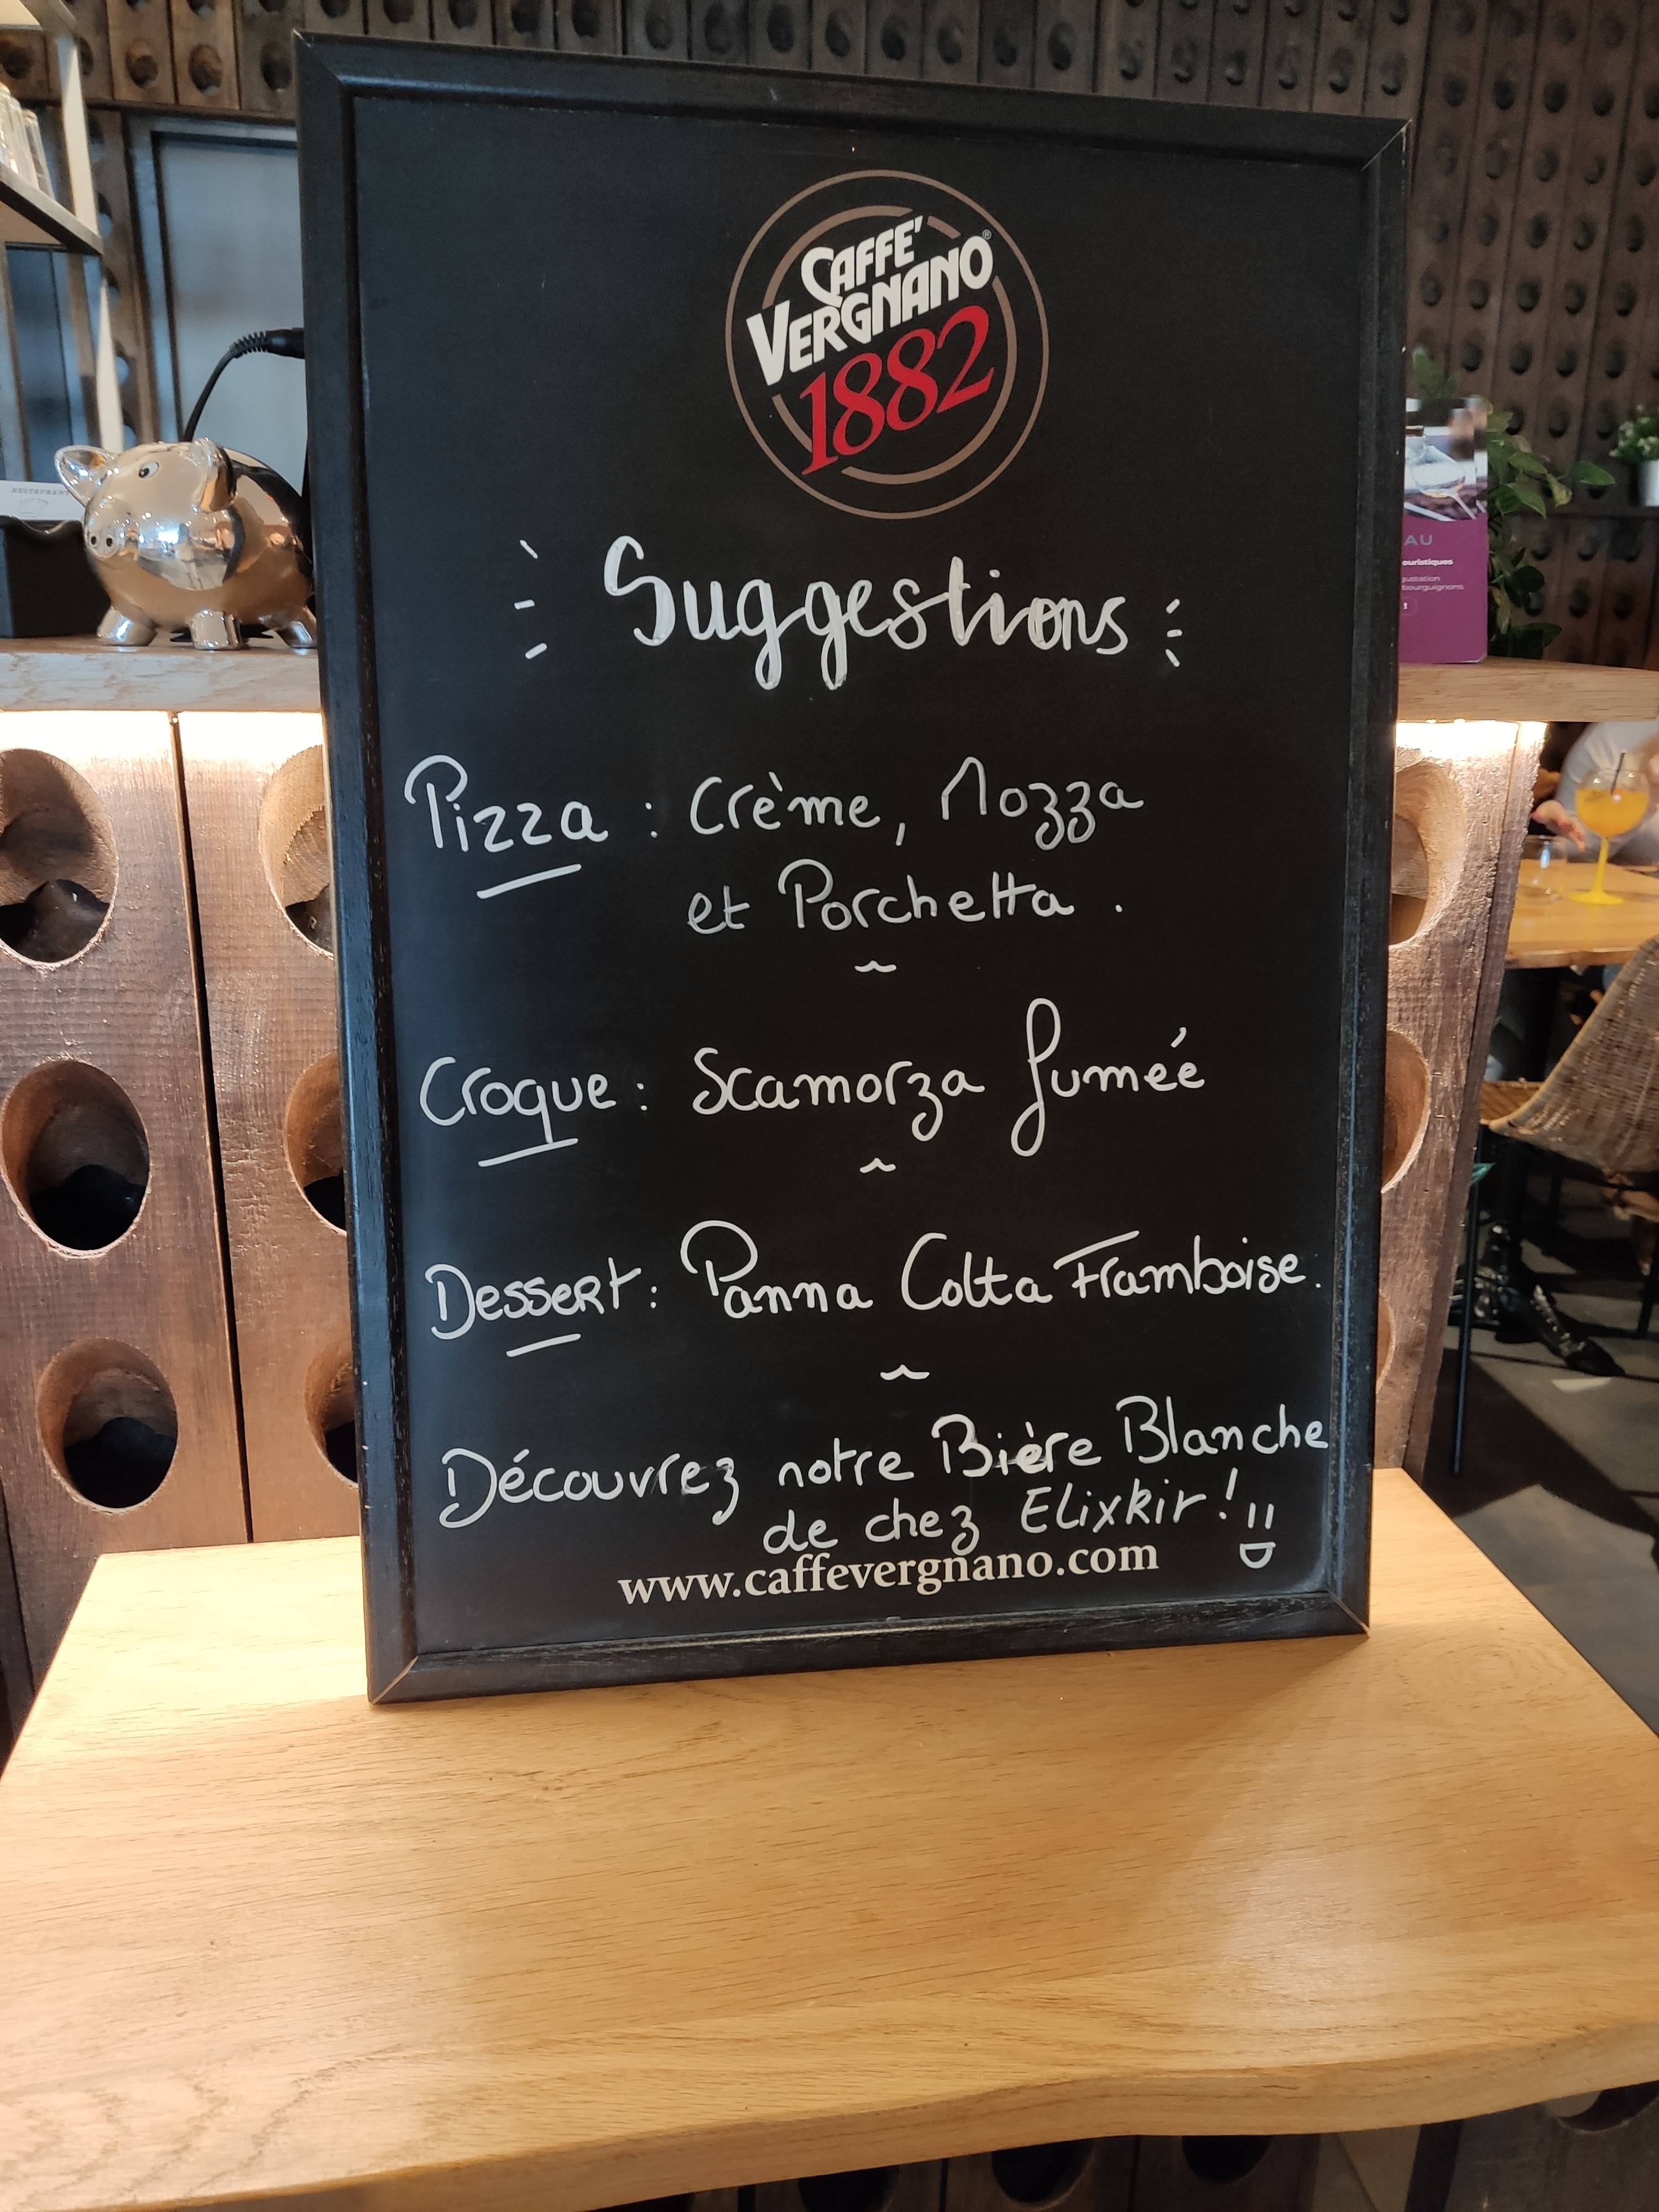 CAFFE'
VERGNANO®
1882
Suggestions
Pizza : Crème, Mozza
et Porchetta .
Croque : Scamorza fumée
Dessert : Panna Cotta Framboise.
Découvrez notre Bière Blanche
de chez Elixkir !
www.caffevergnano.com
RESTAURANT
AU
ouristiques
gustation
bourguignons